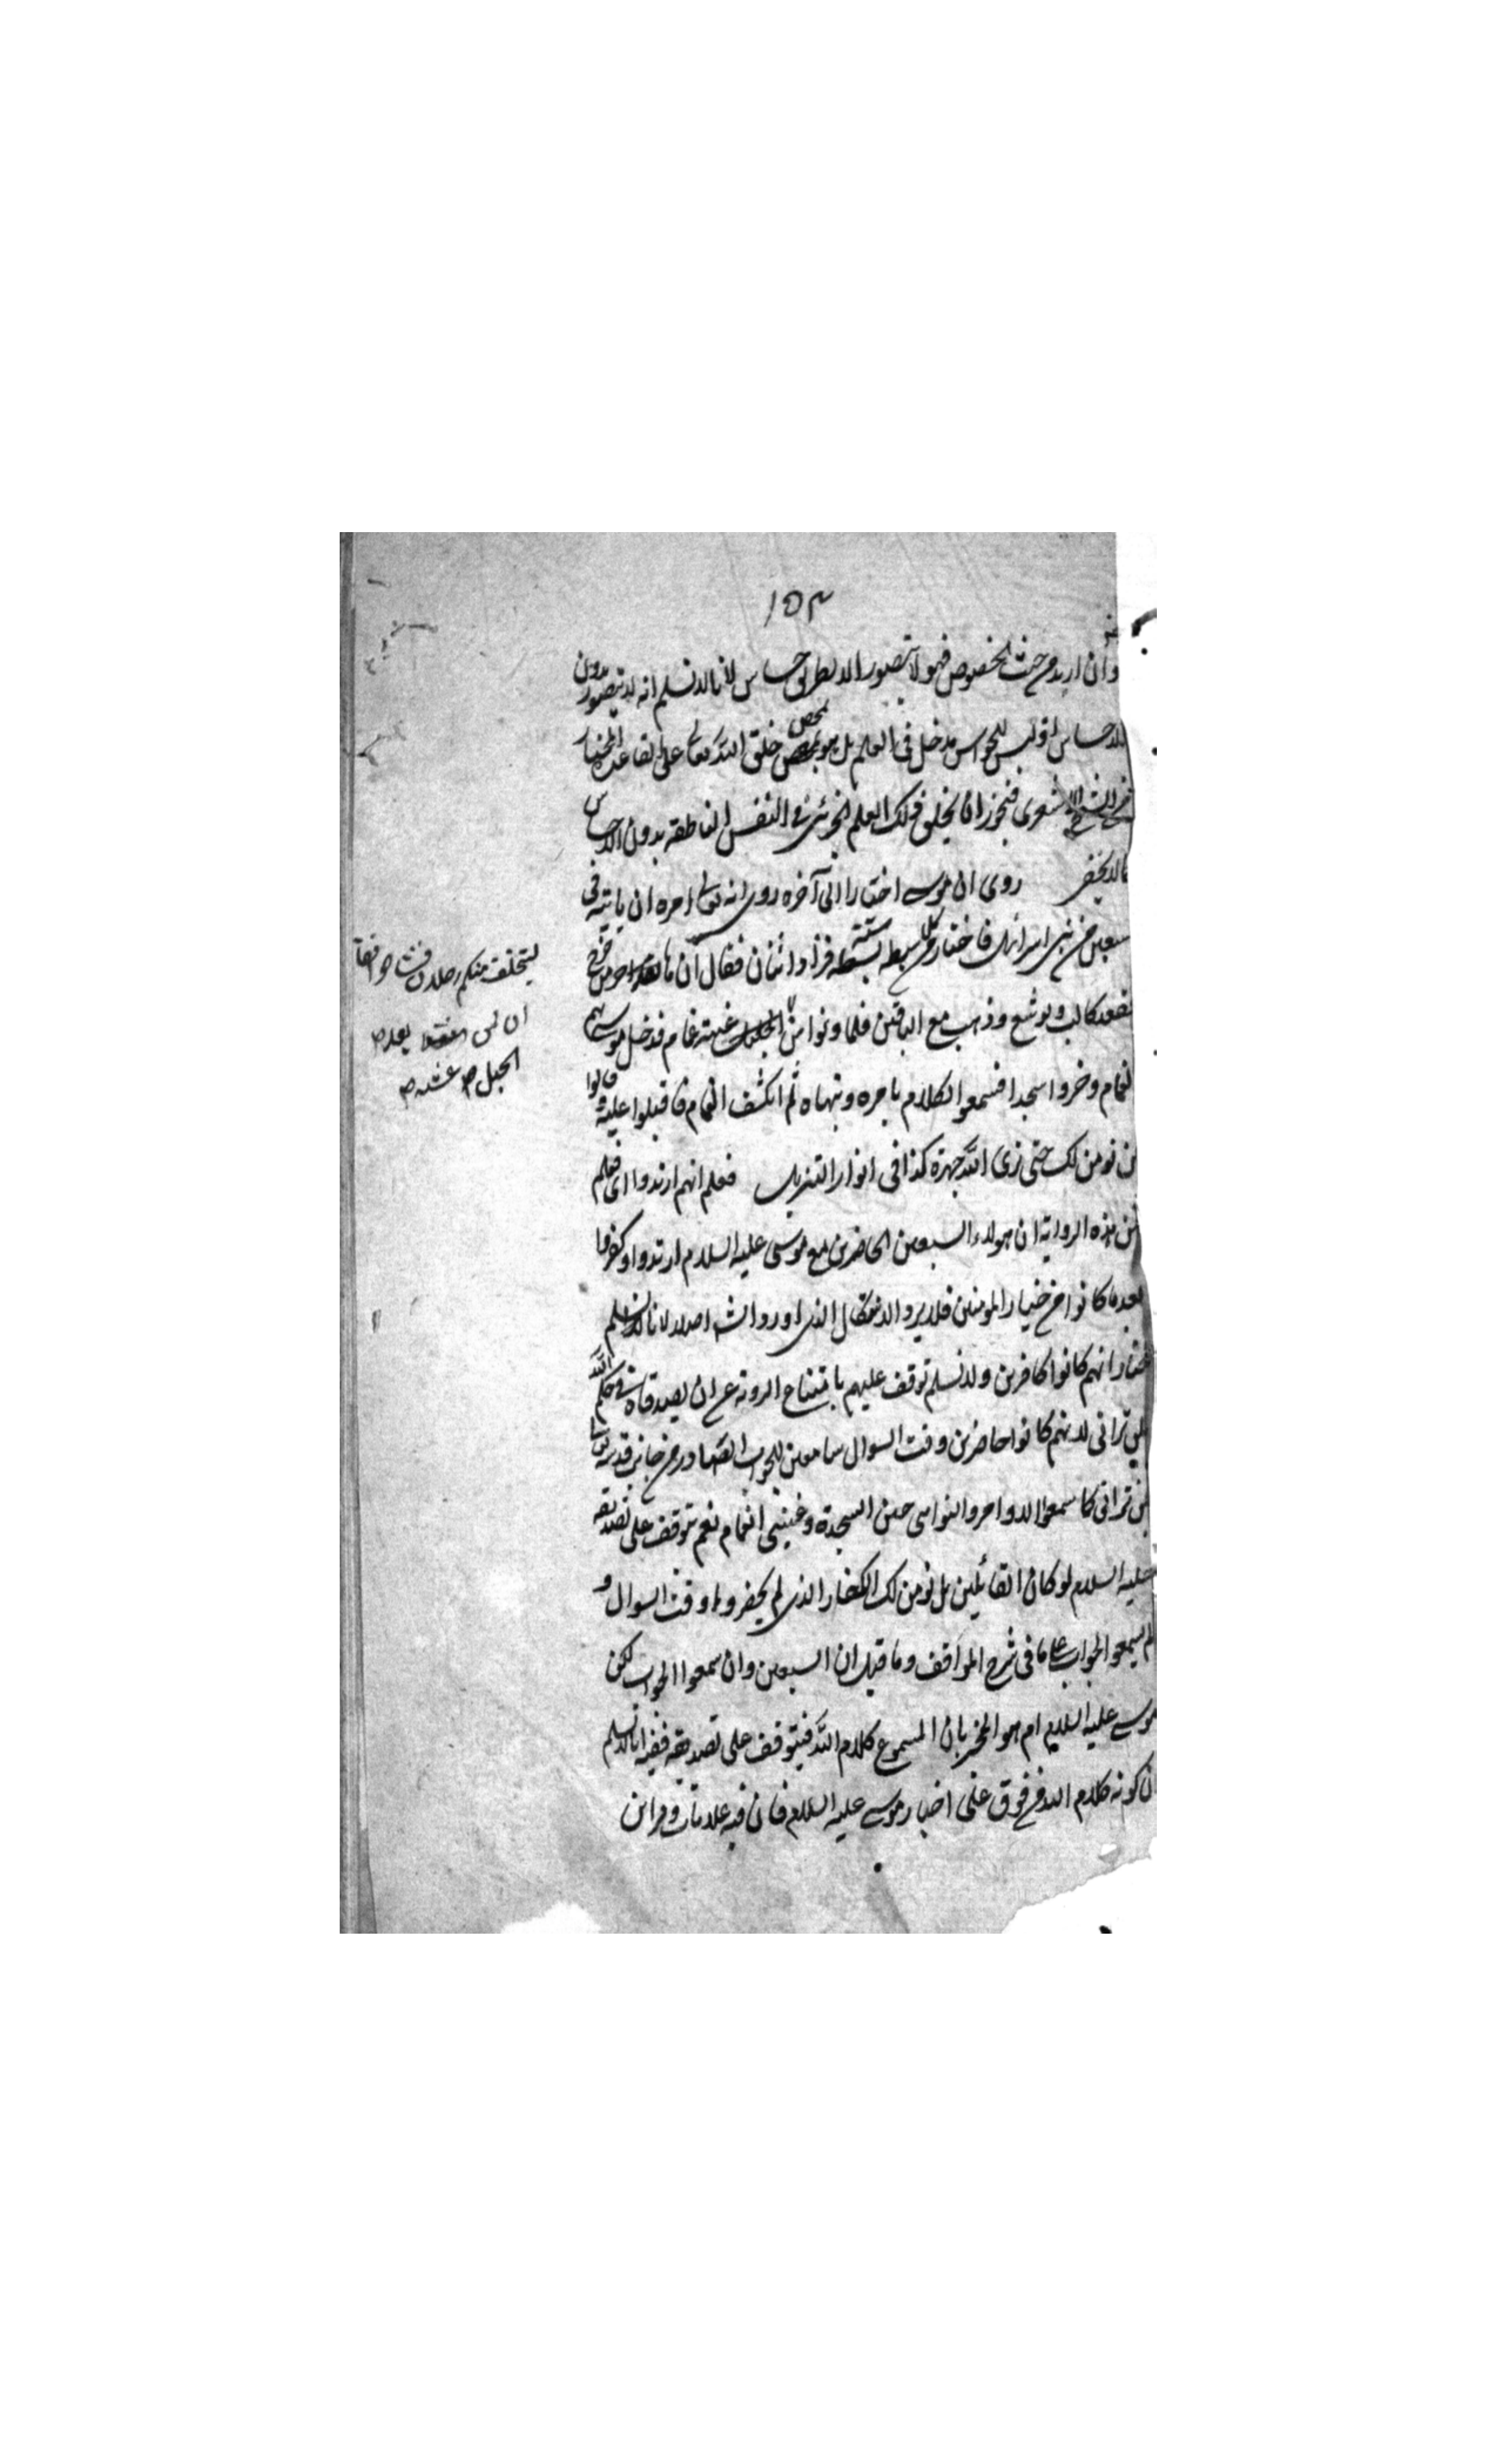 ١٥٣
وان اريد من حيث الخصوص فهو لا يتصور الا بطريق حساس لانا لا نسلم انه لا يتصور بدون
الاحساس اذ ليس للحواس مدخل في العلم بل هو بمحض خلق الله تعالى على القاعدة المختار
الاشعرى فيجوز ان يخلق ذلك العلم الجزئى في النفس الناطقة بدون الاحساس
كما لا يخفى روى ان موسى اختار الى آخره روى انه تعالى امره ان ياتيه في
سبعين من بنى اسرائيل فاختار من كل سبط ستة فزاد اثنان فقال
فقعد كالب ويوشع وذهب مع الباقين فلما دنوا من الجبل غشيه غمام فدخل موسى بهم
الغمام وخروا سجدا فسمعوا الكلام يامره وينهاه ثم انكشف الغمام فاقبلوا عليه وقالوا
لن نومن لك حتى نرى الله جهرة كذا فى انوار التنزيل فعلم انهم ارتدوا اى فعلم
من هذه الرواية ان هولاء السبعين الحاضرين مع موسى عليه السلام ارتدوا وكفروا
بعد ما كانوا من خيار المومنين فلا يرد الاشكال الذى اورد اصلا لانا
نختار انهم كانوا كافرين ولا نسلم توقف علمهم بامتناع الروية على ان يصدقاه في حكم الله
بلن ترانى لانهم كانوا حاضرين وقت السوال سامعين للجواب الصادر من جانب قدسه
لن ترانى كما سمعوا الاوامر والنواهى حين السجدة وغشيتى الغمام نعم يتوقف على تصديقه
عليه السلام لو كان القائلين بل نومن لك الكفار الذى لم يحضروا وقت السوال و
لم يسمعوا الجواب على ما فى شرح المواقف وما قيل ان السبعين وان سمعوا الجواب لكن
موسى عليه السلام هو المخبر بان المسموع كلام الله فيتوقف على تصديقه ففيه انا لا نسلم
ان كونه كلام الله على اخبار موسى عليه السلام فان فيه علامات وقراين
ليتخلف منكم رجلان فتشاحوا فقال
ان لمن قعد
الجبل غشيه